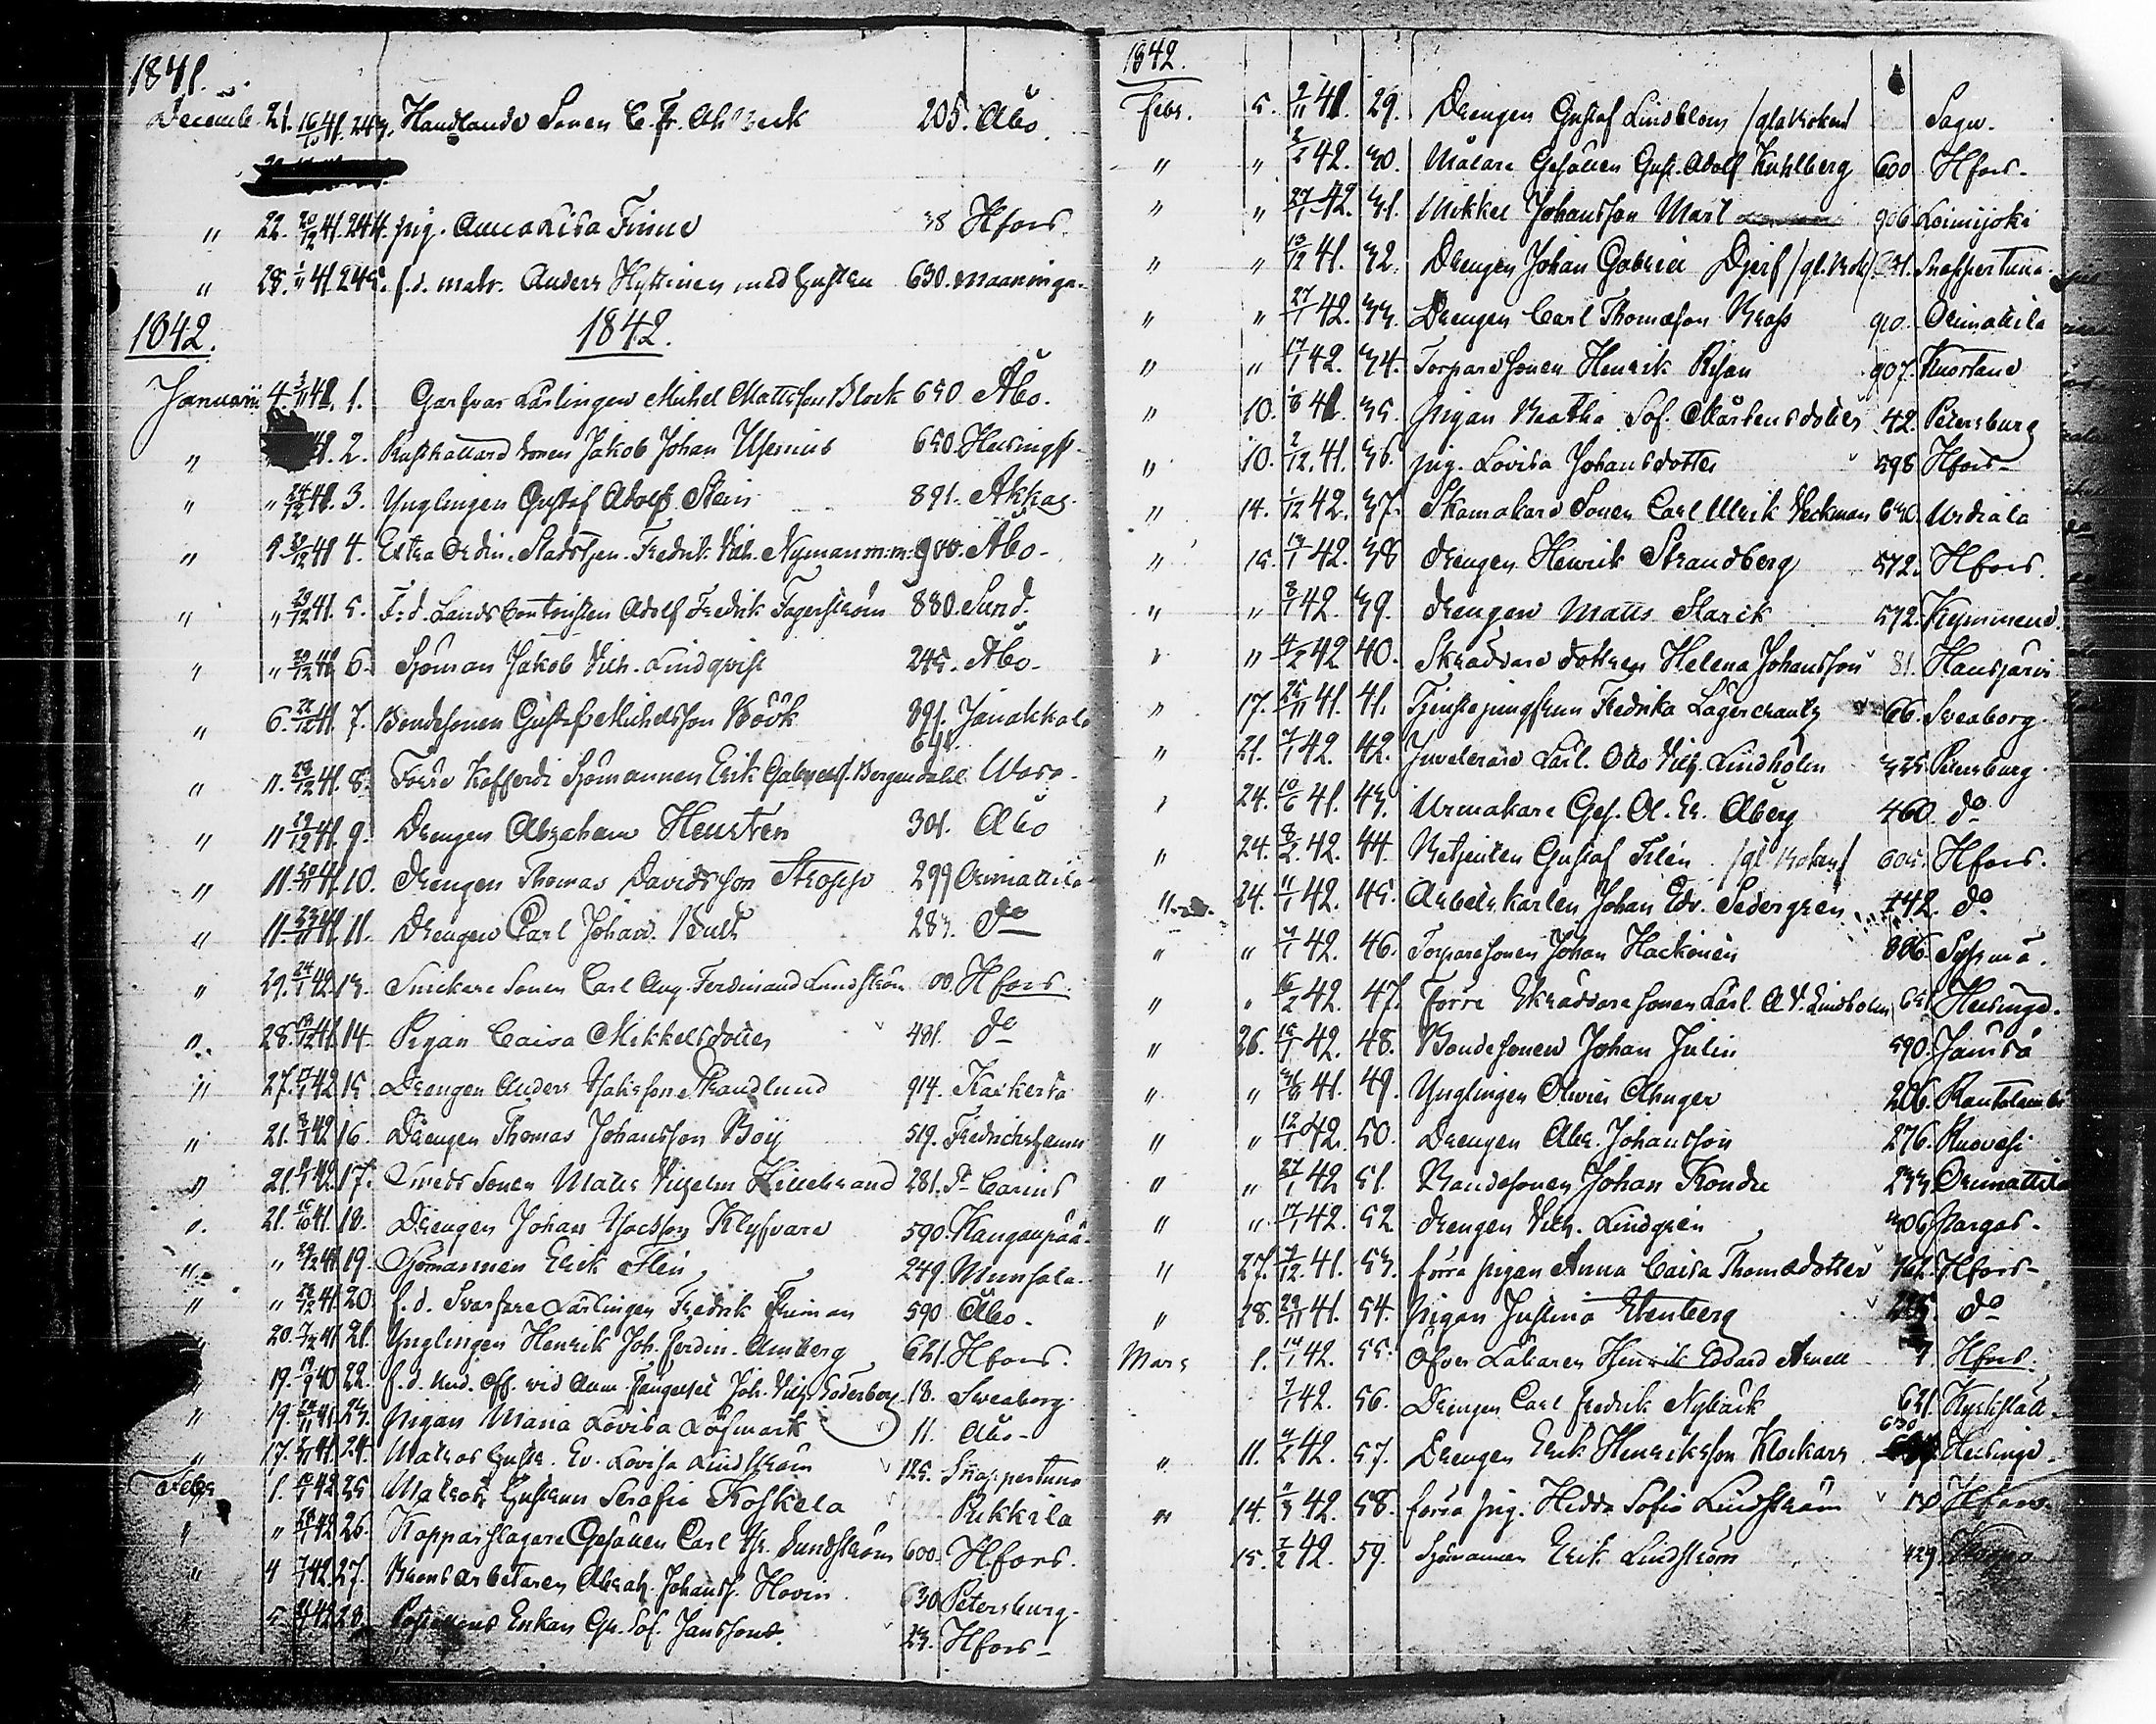 1841.
Decemb. 21. 16/10 41. 243. Handlande Sonen C. Fr. Ahlbeck 205. Åbo
" 22. 20/12 41. 244. pig. Anna Lisa Finne 38 Hfors.
" 28. 1/11 41. 245. f. d. matr. Anders Hyttinen med hustru 630. Maaninga.
1842. 1842.
Januarii 4. 41. 1. Garfvar Lärlingen Michel Mattsson Block 650 Åbo.
" 41. 2. Rusthållare sonen Jakob Johan Usenius 650. Helsingf.
" " 24/12 41. 3. Ynglingen Gustaf Adolf Stein 891. Akkas.
" 9 30/12 41 4. Extra Ordin. Stadstjen. Fredrik Vilh. Nyman m.m. 900. Åbo.
" " 23/12 41. 5. F: d. Lands Contoristen Adolf Fredrik Fagerström 880. Sund.
" " 29/12 41 6. Sjöman Jakob Vilh. Lindqvist 245. Åbo.
" 6. 41. 7. Bondesonen Gustaf Michelsson Böök 891. Janakkala
641.
" 11. 28/12 41. 8. Förre Kofferdi Sjömannen Erik Gabrielss. Bergendahl Wasa.
" 11 29/12 41. 9. Drengen Abraham Hensten 301. Åbo
" 11. 20/11 41. 10. Drengen Thomas Davidsson Stropp 299 Orimattila
" 11. 23/11 41. 11. Drengen Carl Johan Bult 283. do
" 29. 24/1 42. 13. Snickare Sonen Carl Aug. Ferdinand Lundström 00. Hfors.
" 28. 18/12 41. 14. Pigan Caisa Mikkelsdotter 481. do
" 27. 17/1 42 15 Drengen Anders Isaksson Strandlund 914. Karkerta
" 21. 8/1 42 16. Drengen Thomas Johansson Boij 519. Fredrichshamn
" 21. 42. 17. Smeds Sonen Matts Vilhelm Hillebrand 281. St Carins
" 21. 16/10 41. 18. Drengen Johan Isacsson Klyfvare 590. Kanganpää.
" " 29/12 41 19. Sjömannen Erik Flen 249. Munsala.
" " 28/12 41. 20. f. d. Svarfvare Lärlingen Fredrik Friman 590 Åbo.
" 20. 7/12 41. 21. Ynglingen Henrik Joh. Ferdin. Amberg 621. Hfors.
" 19. 19/9 40 22. f. d. Und. Off. vid Aum. Fängelset Joh. Vilh. Söderberg 18. Sveaborg.
" 19. 41. 23. Pigan Maria Lovisa Löfmark 11. Åbo
" 17. 41. 24. Matros hustr. Ev. Lovisa Lindström 125. Snappertuna
Febr. 1. 42 25. Matros hustrun Serafia Koskela Pukkila
" " 42 26. Kopparslagare Gesällen Carl Hr. Sundström 600. Hfors.
" 4 7/1 42 27. Kronoarbetaren Abrah. Johanss. Hovin 630 Petersburg.
5. 42 28. Enkan Gr. Sof. Janssons. 23. Hfors
1842.
Febr. 5. 2/11 41. 29. Drengen Gustaf Lindblom /gla boken/ Sagu.
" " 2/2 42. 30. Målare Gesällen Gust. Adolf Kuhlberg 600 Hfors.
" " 27/1 42. 31. Mikkel Johansson Mart 906 Loimijoki
" " 13/12 41. 32. Drengen Johan Gabriel Djerf /gl. bok/ 231. Snappertuna.
" " 27/1 42. 33. Drengen Carl Thomasson Krass 910. Orimattila
" " 17/1 42. 34. Torparesonen Henrik Risan 907. Kuortane
" 10. 41. 35. Pigan Martha Sof. Mårtensdotter 42. Petersburg
" 10. 2/12. 41. 36. pig. Lovisa Johansdotter 598 Hfors
" 14. 1/12 42. 37. Skomakare Sonen Carl Ulrik Veckman 630. Urdiala
" 15. 13/1 42. 38 drengen Henrik Strandberg 572. Hfors.
" " 8/1 42. 39. drengen Matts Starck 572. Kymmene.
" " 4/2 42 40. Skräddare dottren Helena Johansson 81. Hausjärvi
" 17. 25/11 41. 41. Tjenstejungfrun Fredrika Lagercrantz 66. Sveaborg.
" 21. 7/1 42. 42. Juvelerare Lärl. Otto Vilh. Lindholm 325. Petersburg.
" 24. 10/6 41. 43. Urmakare Ges. A. Er. Åberg 460. do
" 24. 8/2. 42. 44. Betjenten Gustaf Filén /gl. boken/ 605. Hfors.
" 24. 11/1 42. 45. Arbetskarlen Johan Edv. Sedergren 442. do
" " 7/1 42. 46. Torparesonen Johan Hackinen 886. Sysmä.
" " 16/2 42. 47. Förre Skräddare sonen Carl A. V. Lindholm 651 Helsinge.
" 26. 18/1 42. 48. Bondesonen Johan Julin 590. Jämsä
" " 41. 49. Ynglingen Olivier Ahnger 206. Rautalambi
" " 12/1 42. 50. Drengen Abr. Johansson 276. Ruovesi
" " 27/1 42 51. Bondesonen Johan Kondu 233 Orimattila
" " 17/1 42. 52 drengen Vilh. Lindgrén 306 Pargas.
" 27. 7/12 41. 53. förra pigan Anna Caisa Thomædotter 761. Hfors
" 28. 29/11 41. 54. Pigan Justina Ekenberg do
Mars 1. 14/1 42. 55. Öfver Läkaren Henrik Edvard Arnell 7. Hfors.
7/1 42. 56. Drengen Carl Fredrik Nybäck 621. Kyrkslätt
" 11. 42. 57. Drengen Erik Henriksson Klockars 630 Helsinge.
" 14. 11/3 42. 58. förra pig. Hedda Sofia Lindström Hfors.
15. 2/2 42. 59. Sjömannen Erik Lindström 429 Korpo